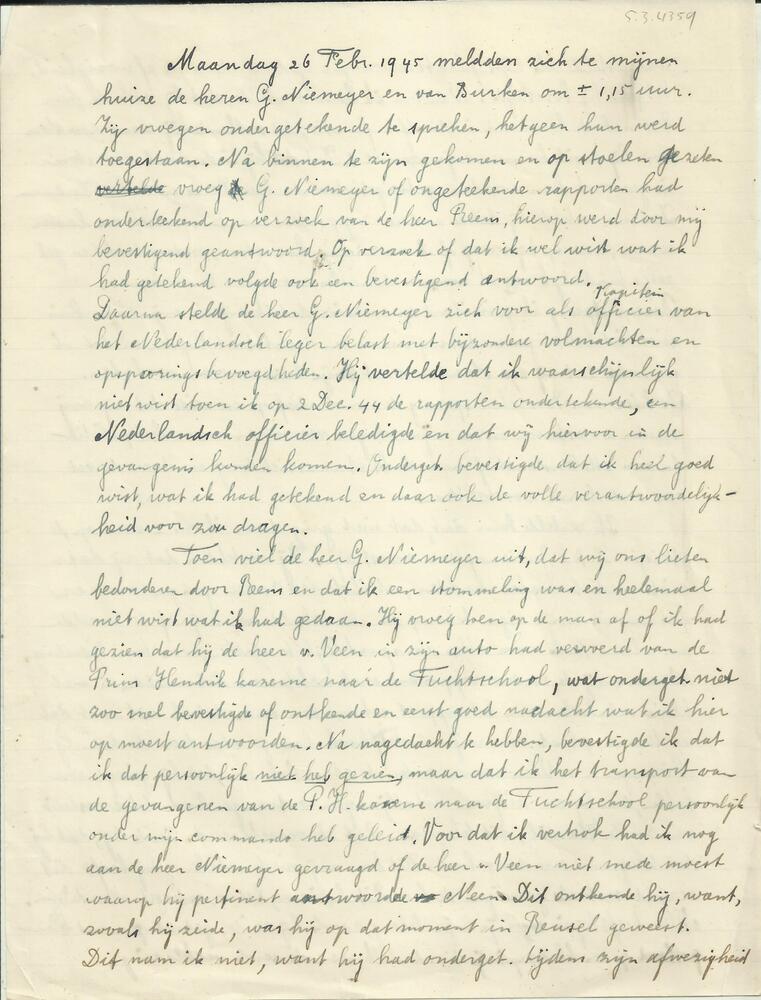 S.3.4359
Maandag 26 Febr. 1945 meldden zich te mijnen
huize de heren G. Niemeyer en van Burken om ± 1,15 uur.
Zij vroegen ondergetekende te spreken, hetgeen hun werd
toegestaan. Na binnen te zijn gekomen en op stoelen gezeten
vertelde vroeg G. Niemeyer of ongeteekende rapporten had
onderteekend op verzoek van de heer Reens, hierop werd door mij
bevestigend geantwoord. Op verzoek of dat ik wel wist wat ik
had getekend volgde ook een bevestigend antwoord.
Kapitein
Daarna stelde de heer G. Niemeyer zich voor als officier van
het Nederlandsch leger belast met bijzondere volmachten en
opsporingsbevoegdheden. Hij vertelde dat ik waarschijnlijk
niet wist toen ik op 2 Dec. 44 de rapporten ondertekende, een
Nederlandsch officier beledigde en dat wij hiervoor in de
gevangenis konden komen. Onderget. bevestigde dat ik heel goed
wist, wat ik had getekend en daar ook de volle verantwoordelijk-
heid voor zou dragen.
Toen viel de heer G. Niemeyer uit, dat wij ons lieten
bedonderen door Reens en dat ik een stommeling was en heelemaal
niet wist wat ik had gedaan. Hij vroeg toen op de man af of ik had
gezien dat hij de heer v. Veen in zijn auto had vervoerd van de
Prins Hendrik kazerne naar de Tuchtschool, wat onderget. niet
zoo snel bevestigde of ontkende en eerst goed nadacht wat ik hier
op moest antwoorden. Na nagedacht te hebben, bevestigde ik dat
ik dat persoonlijk niet heb gezien, maar dat ik het transport van
de gevangenen van de P.H. kazerne naar de Tuchtschool persoonlijk
onder mijn commando heb geleid. Voor dat ik vertrok had ik nog
aan de heer Niemeyer gevraagd of de heer v. Veen niet mede moest
waarop hij pertinent antwoordde Neen. Dit ontkende hij, want,
zooals hij zeide, was hij op dat moment in Reusel geweest.
Dit nam ik niet, want hij had onderget. tijdens zijn afwezigheid